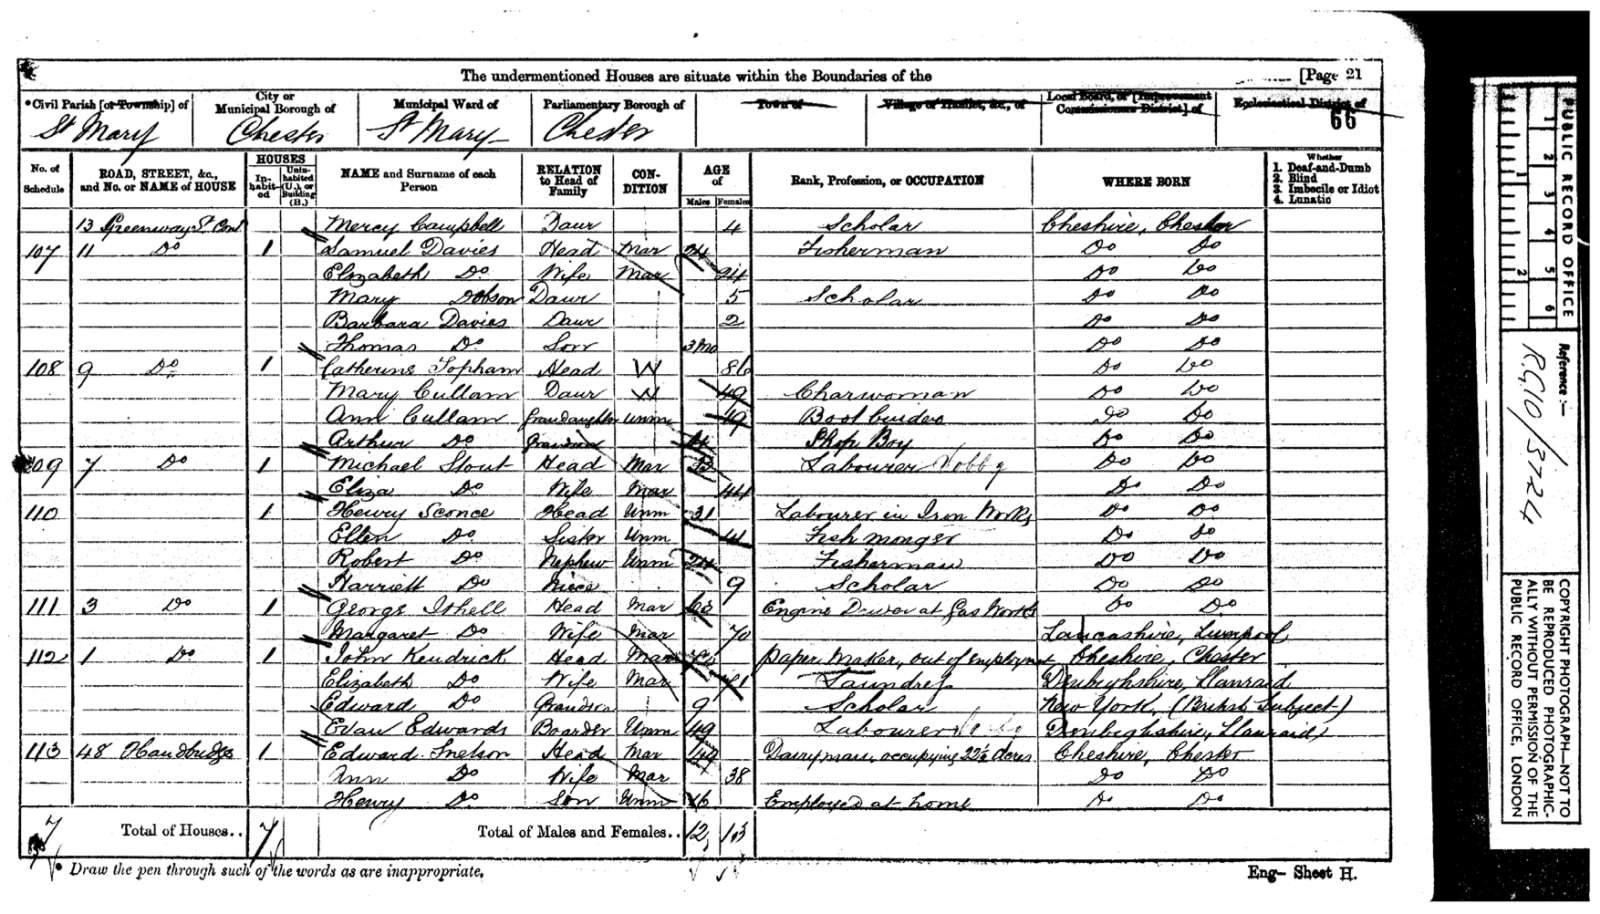 The undermentioned Houses are situate within the Boundaries of the [Page 21
*Civil Parish [or Township] of City or Municipal Borough of Municipal Ward of Parliamentary Borough of Town of Village or Hamlet, &c., of Local Board, or [Improvement Commissioners District] of Ecclesiastical District of
St Mary Chester St Mary Chester 66
No. of Schedule ROAD, STREET, &c., and No. or NAME of HOUSE HOUSES Inhabited Uninhabited (U.), or Building (B.) NAME and Surname of each Person RELATION to Head of Family CONDITION AGE of Males Females Rank, Profession, or OCCUPATION WHERE BORN Whether 1. Deaf-and-Dumb 2. Blind 3. Imbecile or Idiot 4. Lunatic
13 Greenway St Cont Mercy Campbell Daur 4 Scholar Cheshire, Chester
107 11 Do 1 Samuel Davies Head Mar 24 Fisherman Do Do
Elizabeth Do Wife Mar 24 Do Do
Mary Dobson Daur 5 Scholar Do Do
Barbara Davies Daur 2 Do Do
Thomas Do Son 3 mo Do Do
108 9 Do 1 Catherine Topham Head W 86 Do Do
Mary Cullam Daur W 49 Charwoman Do Do
Ann Cullam Grandaughter Unm 19 Boot binder Do Do
Arthur Do Grandson 14 Shop Boy Do Do
109 7 Do 1 Michael Stout Head Mar Labourer Do Do
Eliza Do Wife Mar 44 Do Do
110 1 Henry Sconce Head Unm 31 Labourer in Iron Works Do Do
Ellen Do Sister Unm 41 Fish monger Do Do
Robert Do Nephew Unm 24 Fisherman Do Do
Harriett Do Niece 9 Scholar Do Do
111 3 Do 1 George Ithell Head Mar Engine Driver at Gas Works Do Do
Margaret Do Wife Mar 70 Lancashire, Liverpool
112 1 Do 1 John Kendrick Head Mar paper Maker, out of employment Cheshire, Chester
Elizabeth Do Wife Mar Laundress Denbighshire, Llanraid
Edward Do Grandson 9 Scholar New York, (British Subject)
Evan Edwards Boarder Unm 49 Labourer Denbighshire, Llanraid
113 48 Handbridge 1 Edward Snelson Head Mar 49 Dairyman, occupying 22½ acres Cheshire, Chester
Ann Do Wife Mar 38 Do Do
Henry Do Son Unm 16 Employed at home Do Do
7 Total of Houses.. 7 Total of Males and Females.. 12 13
* Draw the pen through such of the words as are inappropriate. Eng- Sheet H.
PUBLIC RECORD OFFICE
1 2 3 4 5 6
1 2
Reference:-
R.G.10/3724
COPYRIGHT PHOTOGRAPH—NOT TO
BE REPRODUCED PHOTOGRAPHIC-
ALLY WITHOUT PERMISSION OF THE
PUBLIC RECORD OFFICE, LONDON